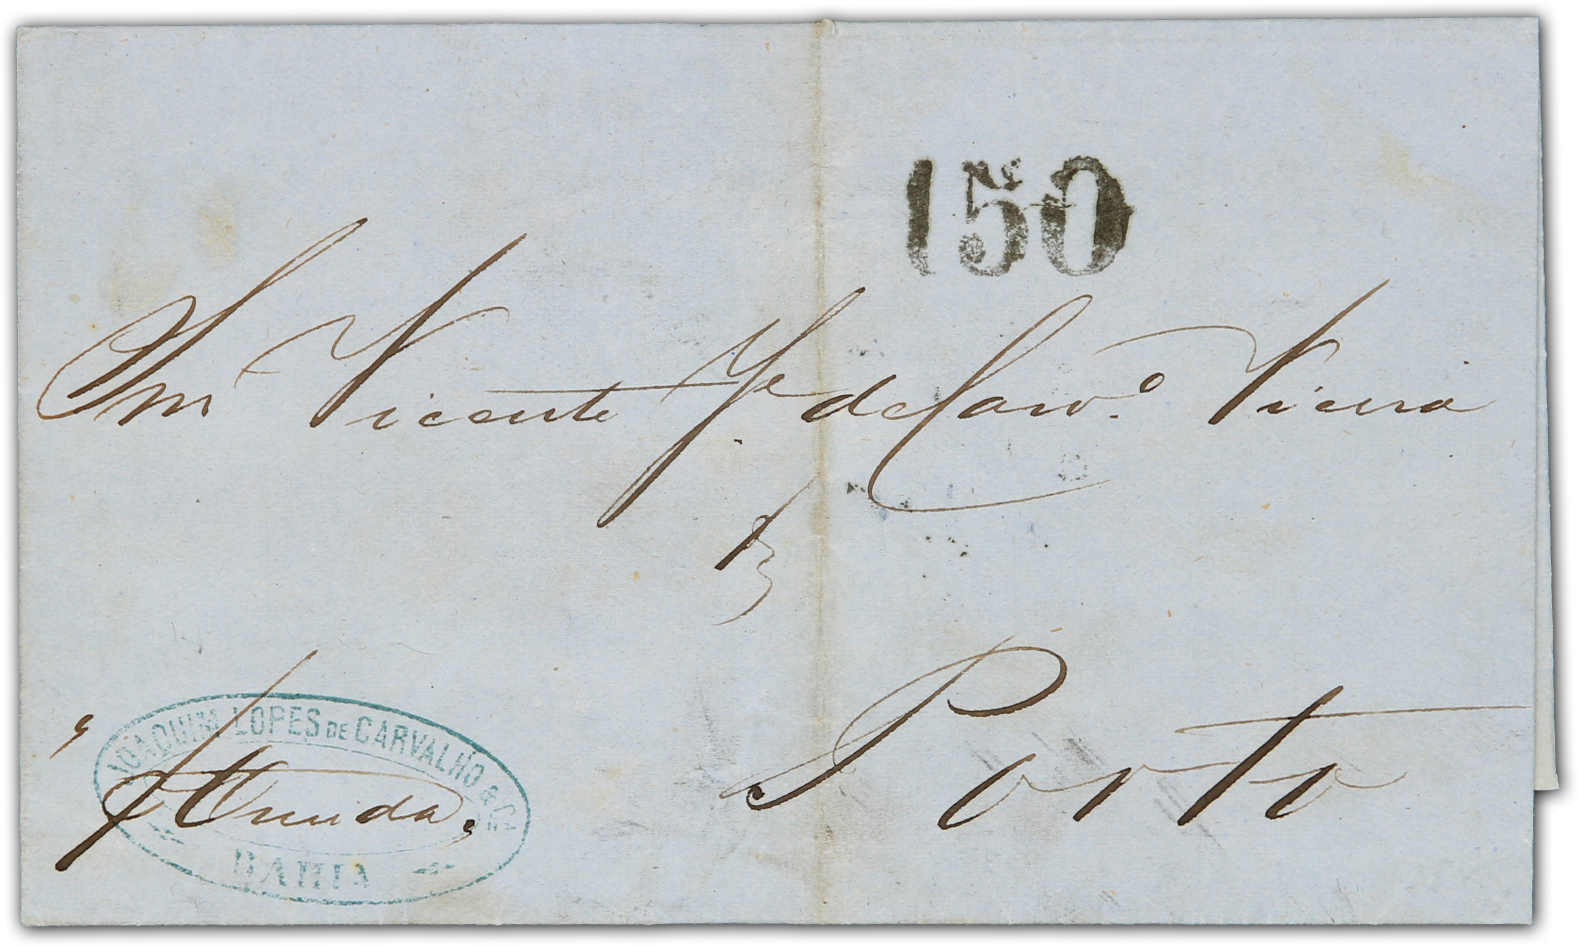 150
Snr Vicente Je de Carvo. Vieira
Porto
JOAQUIM LOPES DE CARVALHO & Ca
BAHIA